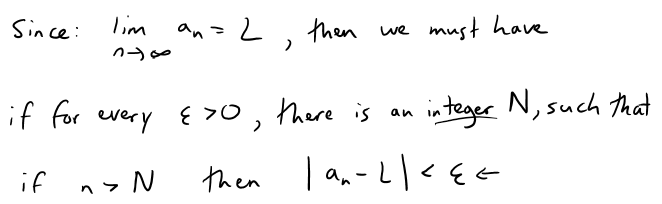 Since: lim n→∞ aₙ = L , then we must have
if for every ε >0 , there is an integer N, such that
if n > N then |aₙ - L| < ε ←